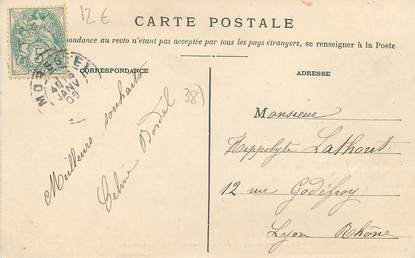 12 €
CARTE POSTALE
pondance au recto n'étant pas acceptée par tous les pays étrangers, se renseigner à la Poste
CORRESPONDANCE
ADRESSE
5
MORESTEL
JANV
05
38)
Meilleurs souhaits
Monsieur
Hippolyte Lathout
12 rue Godefroy
Lyon Rhône